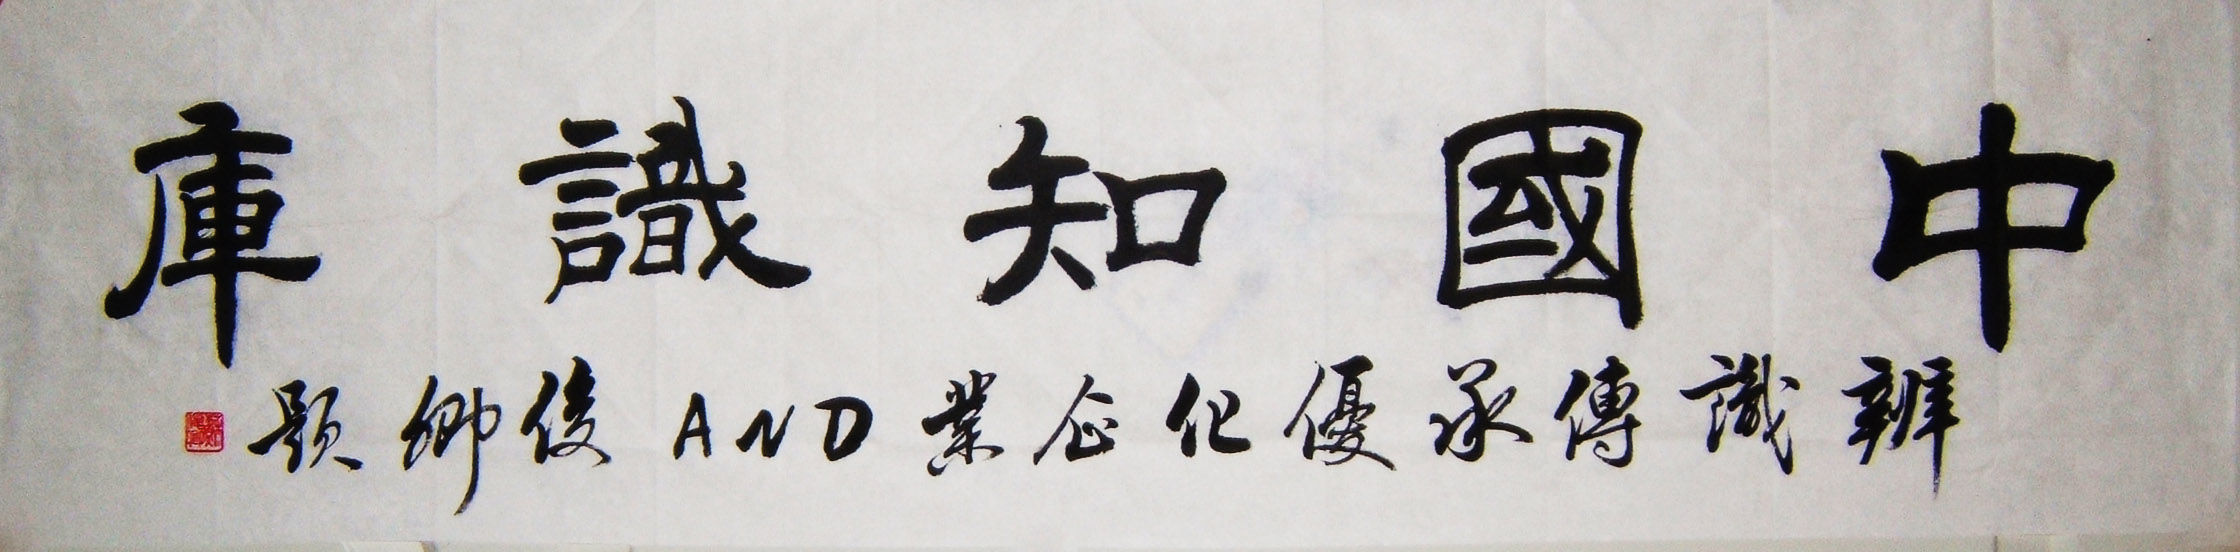 中國知識庫
辨識傳承優化企業AND俊卿題